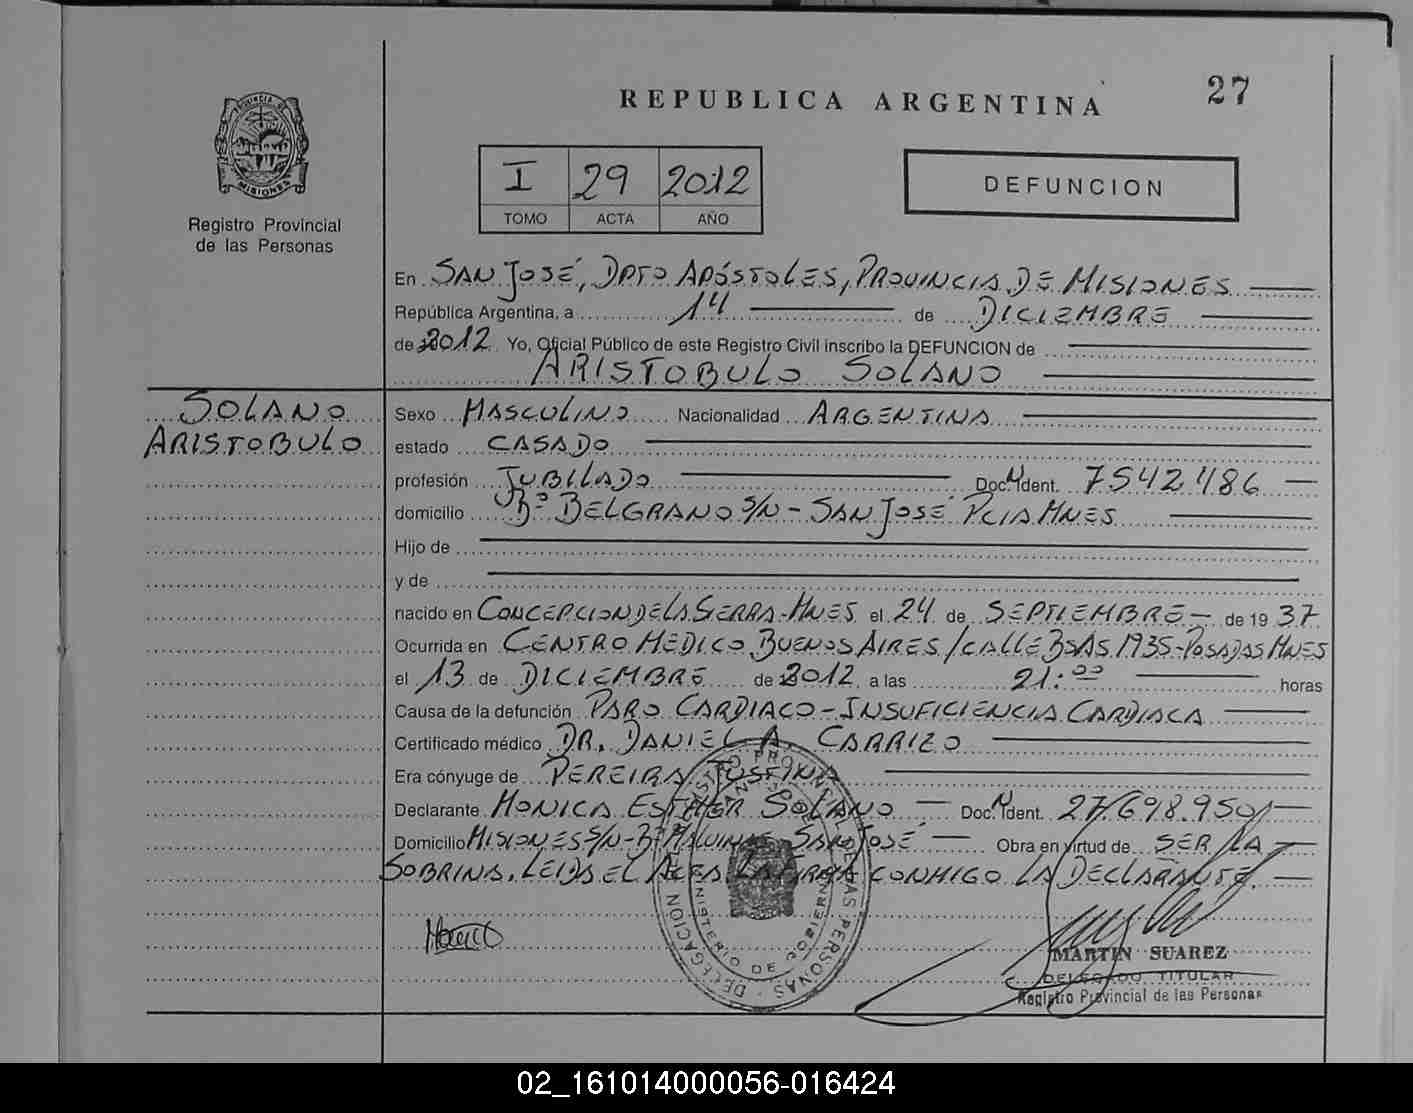 27
REPUBLICA ARGENTINA
PROVINCIA DE
MISIONES
Registro Provincial
de las Personas
I 29 2012
TOMO ACTA AÑO
DEFUNCION
En SAN JOSÉ, DPTO APÓSTOLES, PROVINCIA DE MISIONES
República Argentina, a 14 de DICIEMBRE
de 2012 Yo, Oficial Público de este Registro Civil inscribo la DEFUNCION de
ARISTOBULO SOLANO
SOLANO
ARISTOBULO
Sexo MASCULINO Nacionalidad ARGENTINA
estado CASADO
profesión JUBILADO Doc. Ident. 7542486
domicilio Bº BELGRANO S/N - SAN JOSÉ PCIA MNES
Hijo de
y de
nacido en CONCEPCION DE LA SIERRA-MNES el 24 de SEPTIEMBRE - de 19 37
Ocurrida en CENTRO MEDICO BUENOS AIRES/CALLE BSAS 1935-POSADAS MNES
el 13 de DICIEMBRE de 2012 a las 21:00 horas
Causa de la defunción PARO CARDIACO - INSUFICIENCIA CARDIACA
Certificado médico DR. DANIEL A. CARRIZO
Era cónyuge de PEREIRA JOSFINA
Declarante MONICA ESTHER SOLANO Doc. Ident. 27.698.950
Domicilio MISIONES S/N-Bº MALVINAS SAN JOSÉ Obra en virtud de SER LA
SOBRINA. LEIDA EL ACTA, LA FIRMA CONMIGO LA DECLARANTE.
DELEGACION REGISTRO PROVINCIAL DE LAS PERSONAS
MINISTERIO DE GOBIERNO
MARTIN SUAREZ
DELEGADO TITULAR
Registro Provincial de las Personas
02_161014000056-016424